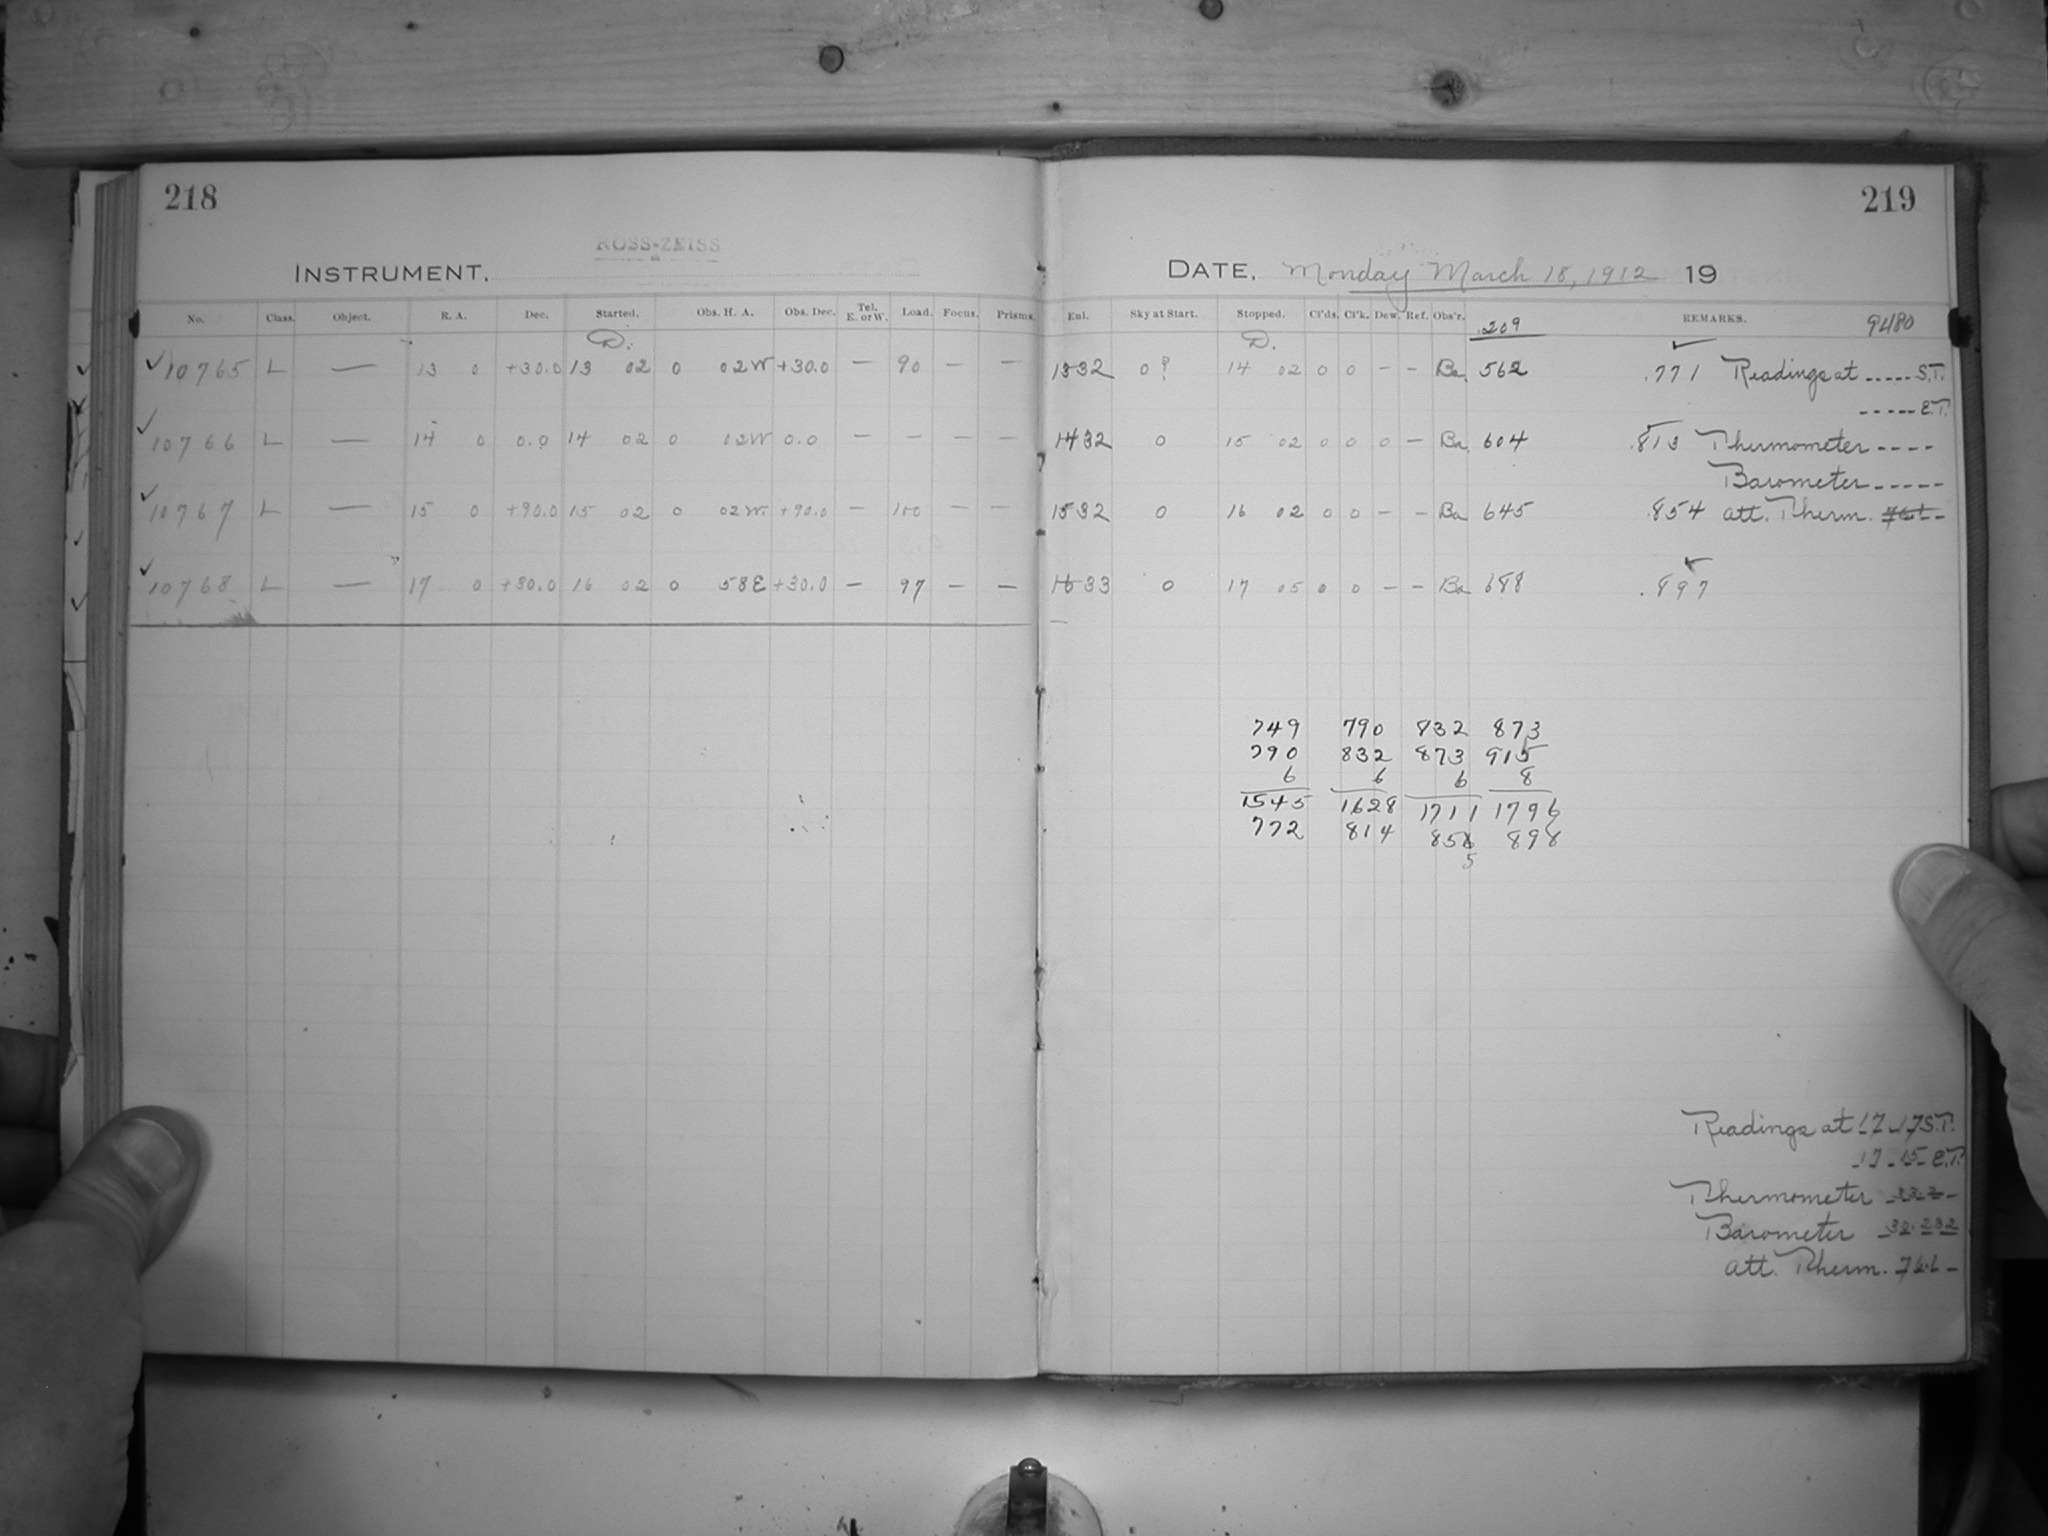 218
219
ROSS-ZEISS
INSTRUMENT.
DATE, Monday March 18, 1912 19
No. Class. Object. R. A. Dec. Started. Obs. H. A. Obs. Dec. Tel. E. or W. Load. Focus. Prisms. Enl. Sky at Start. Stopped. Cl'ds. Cl'k. Dew. Ref. Obs'r. .209 REMARKS. 9480
D. D.
10765 L — 13 0 +30.0 13 02 0 02W +30.0 — 90 — — 1332 0? 14 02 0 0 - - Ba. 562 .771 Readings at ----- S.T.
----- E.T.
10766 L — 14 0 0.0 14 02 0 02W 0.0 — — — — 1432 0 15 02 0 0 0 — Ba. 604 .813 Thermometer ----
Barometer -----
10767 L — 15 0 +90.0 15 02 0 02W. +90.0 — 100 — — 1532 0 16 02 0 0 - - Ba 645 .854 att. Therm. 76.1 -
10768 L — 17 0 +30.0 16 02 0 58E +30.0 — 97 — — 1633 0 17 05 0 0 - - Ba 688 .897
749 790 832 873
790 832 873 915
6 6 6 8
1545 1628 1711 1796
772 814 856 898
5
Readings at 17-17 S.T.
-17-15- E.T.
Thermometer -33.2-
Barometer -30.232
att. Therm. 76.1 -